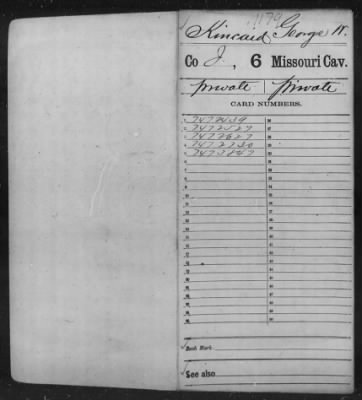 1179
Kincaid, George W.
Co J, 6 Missouri Cav.
private private
CARD NUMBERS.
1 7472439 26
2 7472527 27
3 7472627 28
4 7472730 29
5 7472847 30
6 31
7 32
8 33
9 34
10 35
11 36
12 37
13 38
14 39
15 40
16 41
17 42
18 43
19 44
20 45
21 46
22 47
23 48
24 49
25 50
Book Mark:
See also